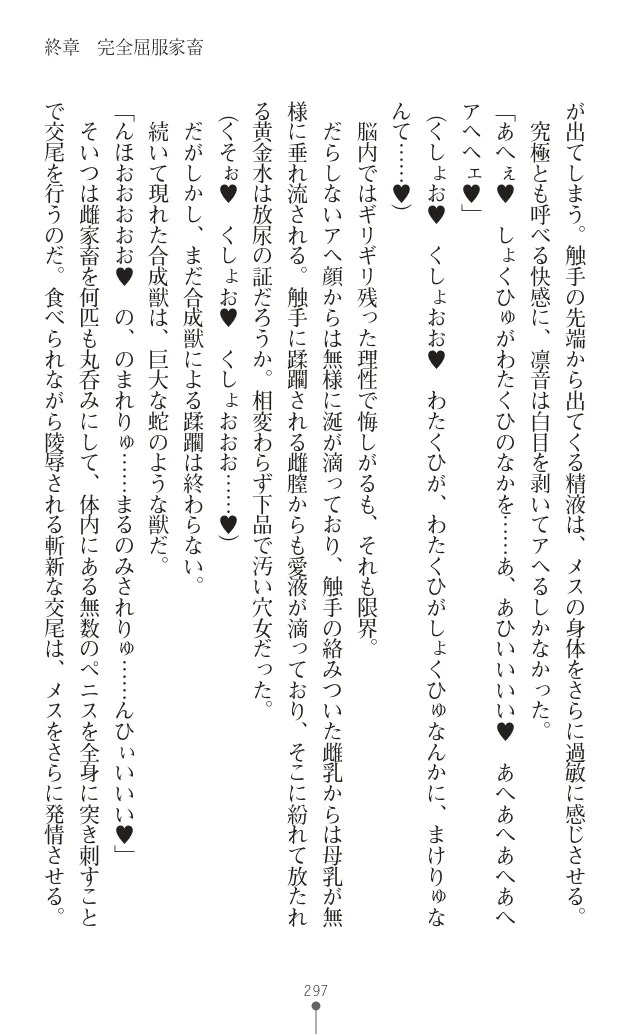 終章　完全屈服家畜
が出てしまう。触手の先端から出てくる精液は、メスの身体をさらに過敏に感じさせる。
　究極とも呼べる快感に、凛音は白目を剥いてアヘるしかなかった。
「あへぇ♥　しょくひゅがわたくひのなかを……あ、あひいいいい♥　あへあへあへあへ
アヘヘェ♥」
（くしょお♥　くしょおお♥　わたくひが、わたくひがしょくひゅなんかに、まけりゅな
んて……♥）
　脳内ではギリギリ残った理性で悔しがるも、それも限界。
　だらしないアヘ顔からは無様に涎が滴っており、触手の絡みついた雌乳からは母乳が無
様に垂れ流される。触手に蹂躙される雌膣からも愛液が滴っており、そこに紛れて放たれ
る黄金水は放尿の証だろうか。相変わらず下品で汚い穴女だった。
（くそぉ♥　くしょお♥　くしょおおお……♥）
　だがしかし、まだ合成獣による蹂躙は終わらない。
　続いて現れた合成獣は、巨大な蛇のような獣だ。
「んほおおおおお♥　の、のまれりゅ……まるのみされりゅ……んひぃいいい♥」
　そいつは雌家畜を何匹も丸呑みにして、体内にある無数のペニスを全身に突き刺すこと
で交尾を行うのだ。食べられながら陵辱される斬新な交尾は、メスをさらに発情させる。
297